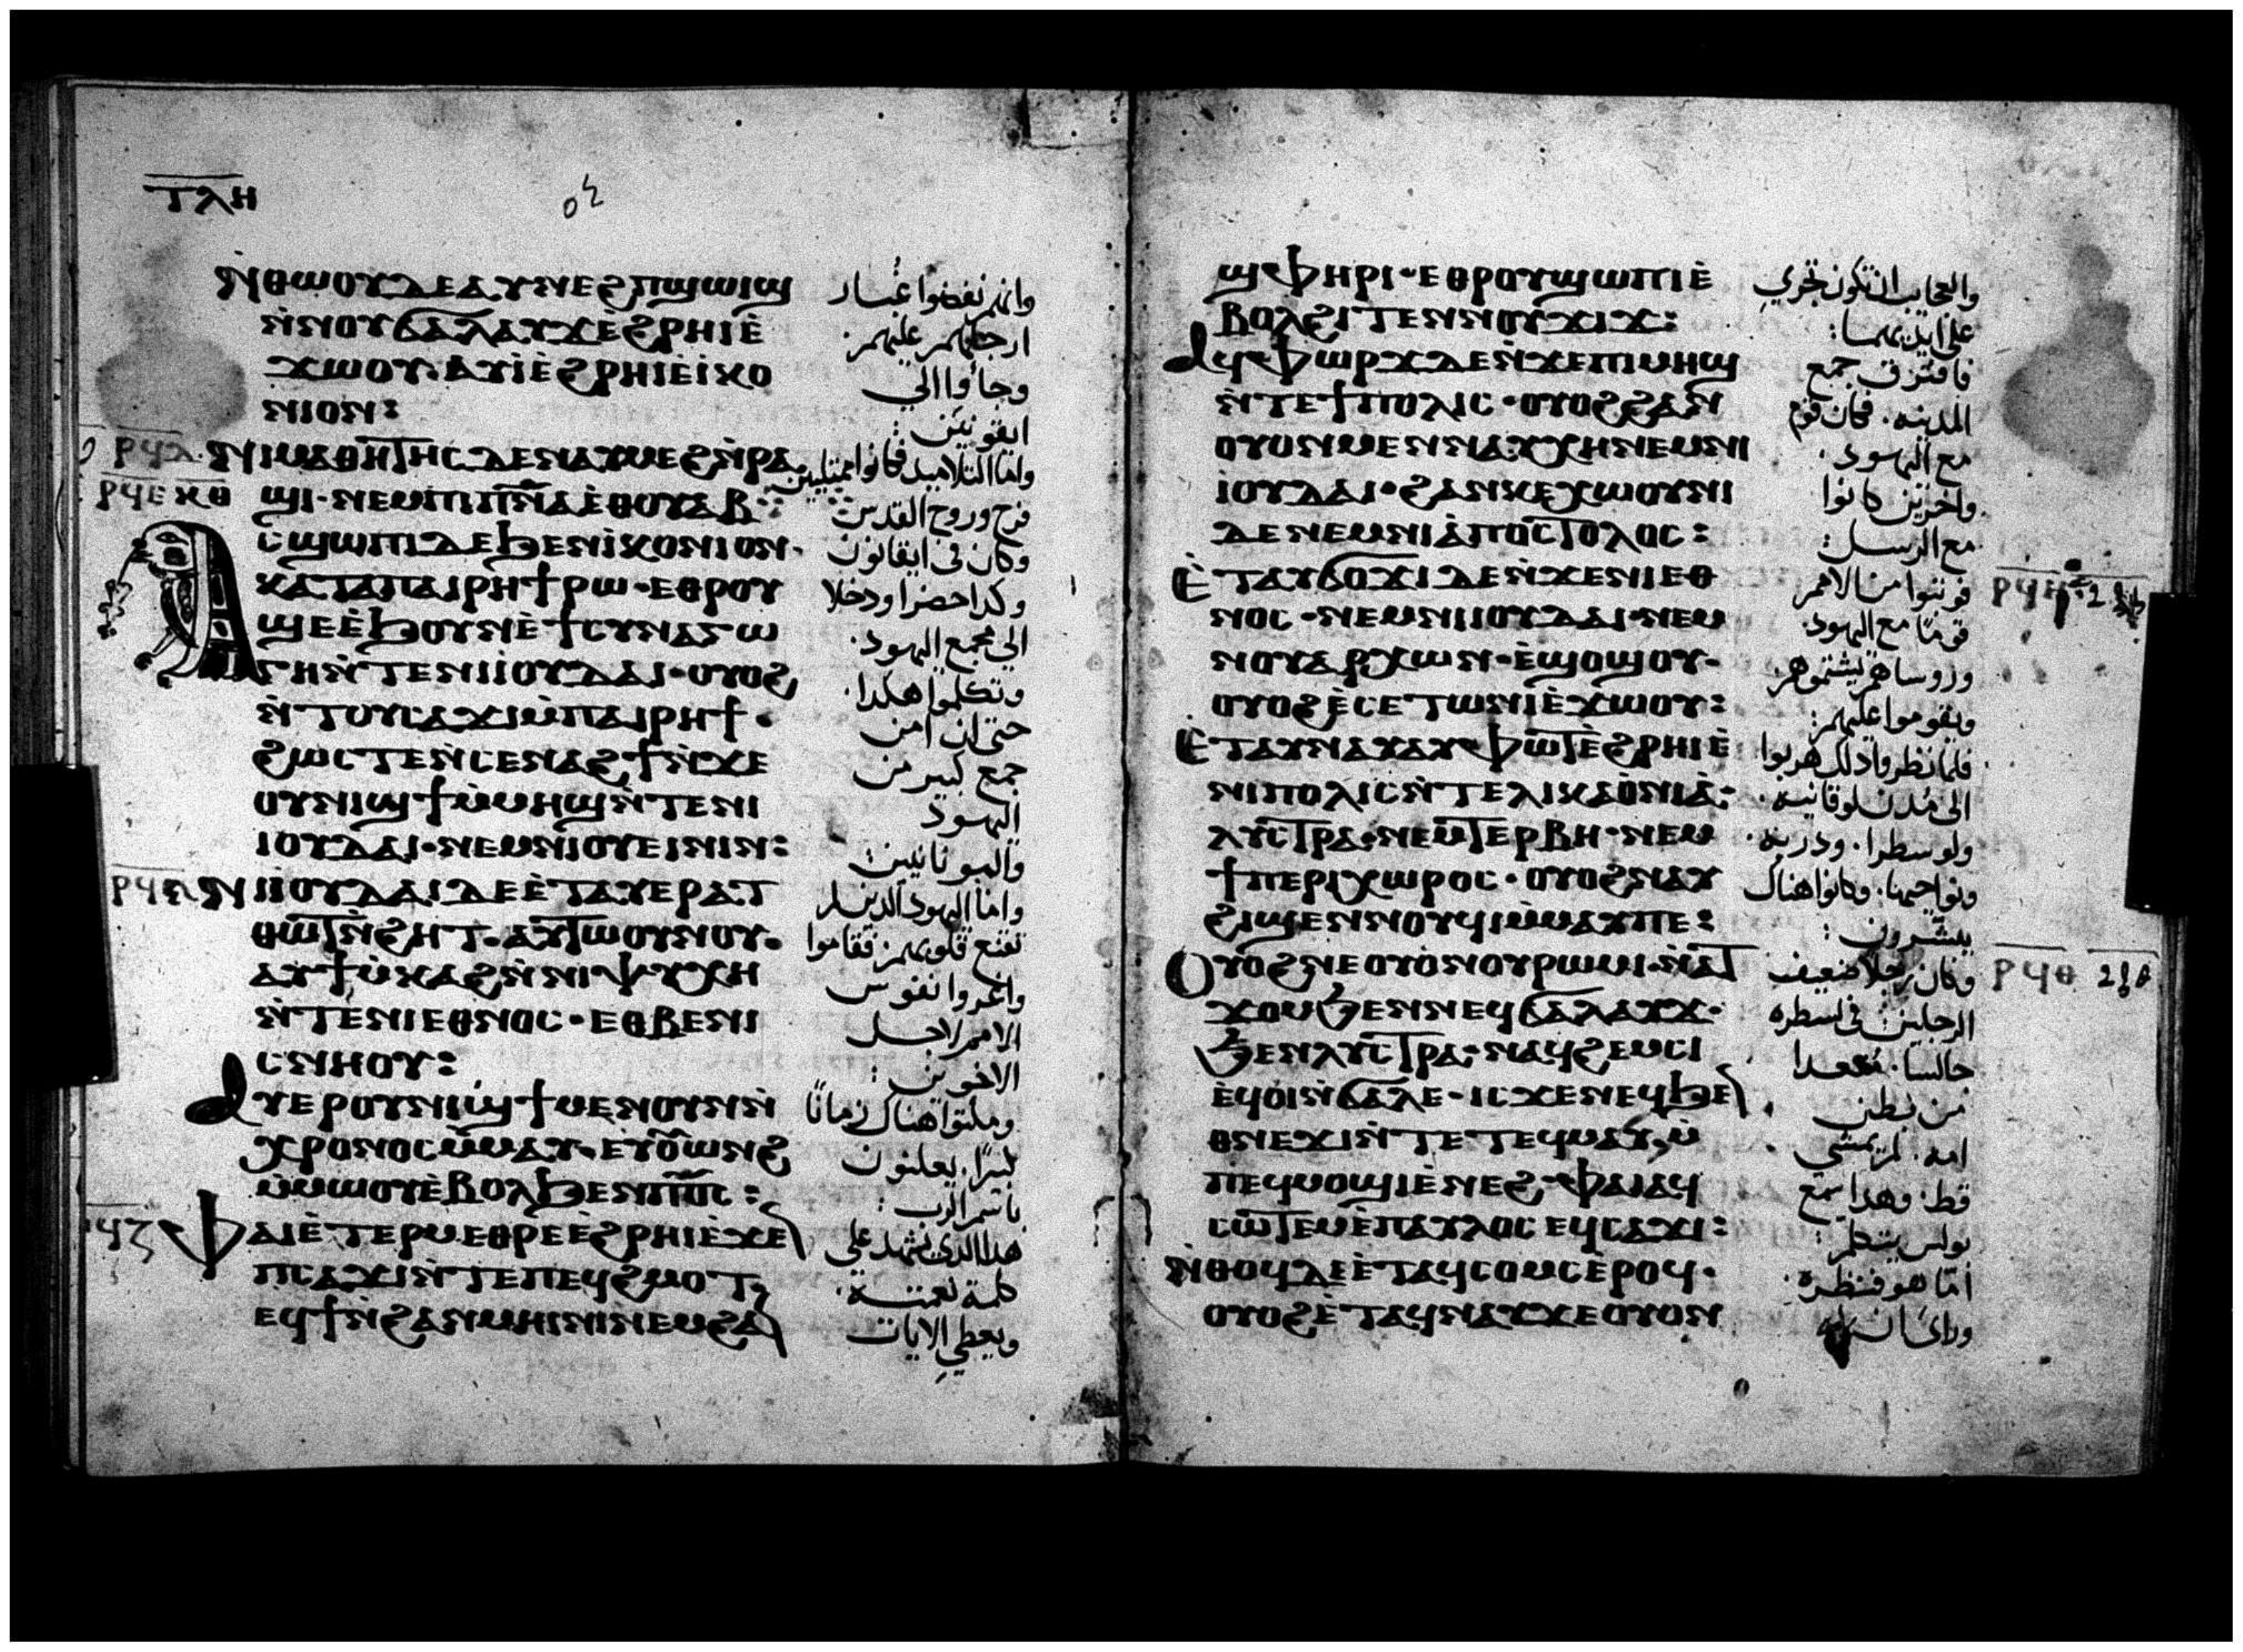 ⲧⲗⲏ
ⲛ̀ⲑⲱⲟⲩ ⲇⲉ ⲁⲩⲛⲉϩ ⲡϣⲱⲓϣ
ⲛ̀ⲛⲟⲩϭⲁⲗⲁⲩϫ ⲉ̀ϩⲣⲏⲓ ⲉ̀
ϫⲱⲟⲩ· ⲁⲩⲓ̀ ⲉ̀ϩⲣⲏⲓ ⲉ̀ⲓⲕⲟ
ⲛⲓⲟⲛ:
ⲛⲓⲙⲁⲑⲏⲧⲏⲥ ⲇⲉ ⲛⲁⲩⲙⲉϩ ⲛ̀ⲣⲁ
ϣⲓ· ⲛⲉⲙ ⲡⲓⲡ̅ⲛ̅ⲁ̅ ⲉ̀ⲑⲟⲩⲁⲃ
ⲁⲥϣⲱⲡⲓ ⲇⲉ ϧⲉⲛ ⲓ̀ⲕⲟⲛⲓⲟⲛ·
ⲕⲁⲧⲁ ⲡⲁⲓⲣⲏϯ ⲣⲱ· ⲉⲑⲣⲟⲩ
ϣⲉ ⲉ̀ϧⲟⲩⲛ ⲉ̀ϯⲥⲩⲛⲁⲅⲱ
ⲅⲏ ⲛ̀ⲧⲉ ⲛⲓⲓ̀ⲟⲩⲇⲁⲓ· ⲟⲩⲟϩ
ⲛ̀ⲧⲟⲩⲥⲁϫⲓ ⲙ̀ⲡⲁⲓⲣⲏϯ·
ϩⲱⲥⲧⲉ ⲛ̀ⲥⲉⲛⲁϩϯ ⲛ̀ϫⲉ
ⲟⲩⲛⲓϣϯ ⲙ̀ⲙⲏϣ ⲛ̀ⲧⲉ ⲛⲓ
ⲓⲟⲩⲇⲁⲓ· ⲛⲉⲙ ⲛⲓⲟⲩⲉⲓⲛⲓⲛ:
ⲛⲓⲓ̀ⲟⲩⲇⲁⲓ ⲇⲉ ⲉ̀ⲧⲁⲩⲉⲣⲁⲧ
ⲑⲱⲧ ⲛ̀ϩⲏⲧ· ⲁⲩⲧⲱⲟⲩⲛⲟⲩ·
ⲁⲩϯⲙ̀ⲕⲁϩ ⲛ̀ⲛⲓⲯⲩⲭⲏ
ⲛ̀ⲧⲉ ⲛⲓⲉⲑⲛⲟⲥ· ⲉⲑⲃⲉ ⲛⲓ
ⲥⲛⲏⲟⲩ:
ⲁⲩⲉⲣ ⲟⲩⲛⲓϣϯ ⲙⲉⲛ ⲟⲩⲛ ⲛ̀
ⲭⲣⲟⲛⲟⲥ ⲙ̀ⲙⲁⲩ· ⲉⲩⲟⲩⲱⲛϩ
ⲙ̀ⲙⲱⲟⲩ ⲉ̀ⲃⲟⲗ ϧⲉⲛ ⲡ̅ⲟ̅ⲥ̅:
ⲫⲁⲓ ⲉ̀ⲧⲉⲣⲙⲉⲑⲣⲉ ⲉ̀ϩⲣⲏⲓ ⲉ̀ϫⲉ
ⲡⲥⲁϫⲓ ⲛ̀ⲧⲉ ⲡⲉϥϩⲙⲟⲧ
ⲉϥϯ ⲛ̀ϩⲁⲛⲙⲏⲓⲛⲓ ⲛⲉⲙ ϩⲁ
وانهم نفضوا غبار
ارجلهم عليهم:
وجاؤا الي
ايقونية:
واما التلاميد فكانوا ممتليين
فرح وروح القدس
وكان في ايقانون
وكدا حضرا ودخلا
الي مجمع اليهود.
وتكلموا هكدا.
حتى ان امن
جمع كبير من
اليهود
واليونانيين:
واما اليهود الدين لم
تقنع قلوبهم فقاموا
واغروا نفوس
الامم لاجل
الاخوين:
ومكثوا هناك زمانًا
كبيرًا. يعلنون
باسم الرب:
هدا الدي يشهد على
كلمة نعمته.
ويعطي الايات
ⲣϥⲇ
ⲣϥⲉ ⲕⲑ
ⲣϥⲋ
ⲣϥⲍ
ϣⲫⲏⲣⲓ· ⲉⲑⲣⲟⲩϣⲱⲡⲓ ⲉ̀
ⲃⲟⲗϩⲓⲧⲉⲛ ⲛⲟⲩϫⲓϫ:
ⲁϥⲫⲱⲣϫ ⲇⲉ ⲛ̀ϫⲉ ⲡⲓⲙⲏϣ
ⲛ̀ⲧⲉ ϯⲡⲟⲗⲓⲥ· ⲟⲩⲟϩ ϩⲁⲛ
ⲟⲩⲟⲛ ⲙⲉⲛ ⲛⲁⲩⲭⲏ ⲛⲉⲙ ⲛⲓ
ⲓⲟⲩⲇⲁⲓ· ϩⲁⲛⲕⲉⲭⲱⲟⲩⲛⲓ
ⲇⲉ ⲛⲉⲙ ⲛⲓⲁ̀ⲡⲟⲥⲧⲟⲗⲟⲥ:
ⲉ̀ⲧⲁⲩϭⲟϫⲓ ⲇⲉ ⲛ̀ϫⲉ ⲛⲓⲉⲑ
ⲛⲟⲥ· ⲛⲉⲙ ⲛⲓⲓⲟⲩⲇⲁⲓ· ⲛⲉⲙ
ⲛⲟⲩⲁⲣⲭⲱⲛ· ⲉ̀ϣⲟϣⲟⲩ·
ⲟⲩⲟϩ ⲉ̀ⲥⲉⲧⲱⲛⲓ ⲉ̀ϫⲱⲟⲩ:
ⲉ̀ⲧⲁⲩⲛⲁⲩ ⲁⲩⲫⲱⲧ ⲉ̀ϩⲣⲏⲓ ⲉ̀
ⲛⲓⲡⲟⲗⲓⲥ ⲛ̀ⲧⲉ ⲗⲓⲕⲁⲟ̀ⲛⲓⲁ̀:
ⲗⲩⲥⲧⲣⲁ· ⲛⲉⲙ ⲧⲉⲣⲃⲏ· ⲛⲉⲙ
ϯⲡⲉⲣⲓⲭⲱⲣⲟⲥ· ⲟⲩⲟϩ ⲛⲁⲩ
ϩⲓϣⲉⲛⲛⲟⲩϥⲓ ⲙ̀ⲙⲁⲩ ⲡⲉ:
ⲟⲩⲟϩ ⲛⲉ ⲟⲩⲟ̀ⲛ ⲟⲩⲣⲱⲙⲓ· ⲛ̀ⲁⲧ
ϫⲟⲙ ϧⲉⲛ ⲛⲉϥϭⲁⲗⲁⲩϫ·
ϧⲉⲛ ⲗⲩⲥⲧⲣⲁ· ⲛⲁϥϩⲉⲙⲥⲓ
ⲉ̀ϥⲟⲓ ⲛ̀ϭⲁⲗⲉ· ⲓⲥϫⲉⲛ ⲉϥϧⲉ
ⲑⲛⲉϫⲓ ⲛ̀ⲧⲉ ⲧⲉϥⲙⲁⲩ, ⲙ̀
ⲡⲉϥⲙⲟϣⲓ ⲉ̀ⲛⲉϩ· ⲫⲁⲓ ⲁϥ
ⲥⲱⲧⲉⲙ ⲉ̀ⲡⲁⲩⲗⲟⲥ ⲉϥⲥⲁϫⲓ:
ⲛ̀ⲑⲟϥ ⲇⲉ ⲉ̀ⲧⲁϥⲥⲟⲙⲥ ⲉ̀ⲣⲟϥ·
ⲟⲩⲟϩ ⲉ̀ⲧⲁϥⲛⲁⲩ ϫⲉ ⲟⲩⲟⲛ
والعجايب ان تكون تجري
على ايديهما:
فافترق جمع
المدينه. فكان قوم
مع اليهود.
واخرين كانوا
مع الرسل:
فوثبوا من الامم
قومًا مع اليهود.
وروساهم يشتموهم.
ويقوموا عليهم:
فلما نظروا دلك هربوا
الى مدن لوقانيه.
ولوسطرا. ودربه.
ونواحيها. وكانوا هناك
يبشرون:
وكان رجلا ضعيف
الرجلين في لسطره
جالسا. مقعدا
من بطن
امه. لم يمشي
قط. وهدا سمع
بولس يتكلم:
امّا هو فنظره.
وراى ان
ⲣϥⲏ
ⲣϥⲑ